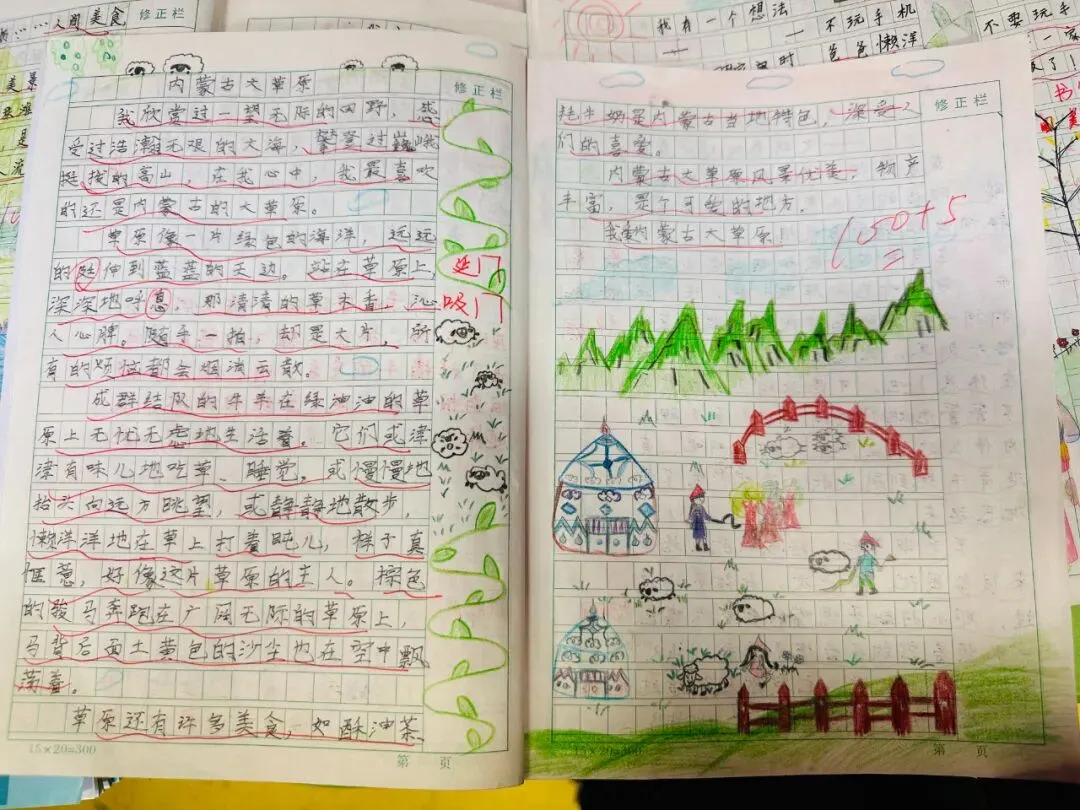 人间美食 修正栏
美景
内蒙古大草原 修正栏
我欣赏过一望无际的田野，感
受过浩瀚无艰的大海，攀登过巍峨
挺拔的高山，在我心中，我最喜吹
的还是内蒙古的大草原。
草原像一片绿色的海洋，远远
的延伸到蓝蓝的天边。站在草原上，
延
深深地呼息，那清清的草木香，沁
吸
人心脾。随手一拍，却是大片，所
有的烦恼都会烟消云散。
成群结队的牛羊在绿油油的草
原上无忧无虑地生活着。它们或津
津有味儿地吃草、睡觉，或慢慢地
抬头向远方眺望，或静静地散步，
懒洋洋地在草上打着盹儿，样子真
惬意，好像这片草原的主人。棕色
的骏马奔跑在广阔无际的草原上，
马背后面土黄色的沙尘也在空中飘
荡着。
草原还有许多美食，如酥油茶
15×20=300 第 页
我有一个想法
不玩手机
不要玩手
爸爸懒洋
修正栏
牦牛奶是内蒙古当地特色，深受人
们的喜爱。
内蒙古大草原风景优美，物产
丰富，是个可爱的地方。
我爱内蒙古大草原！
150+5
15×20=300 第 页